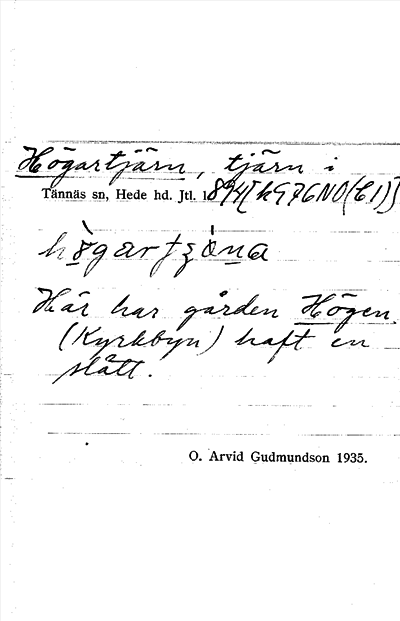 Högartjärn, tjärn i
Tännäs sn, Hede hd. Jtl.
Här har gården Högen
(Kyrkbyn) haft en
slått.
O. Arvid Gudmundson 1935.